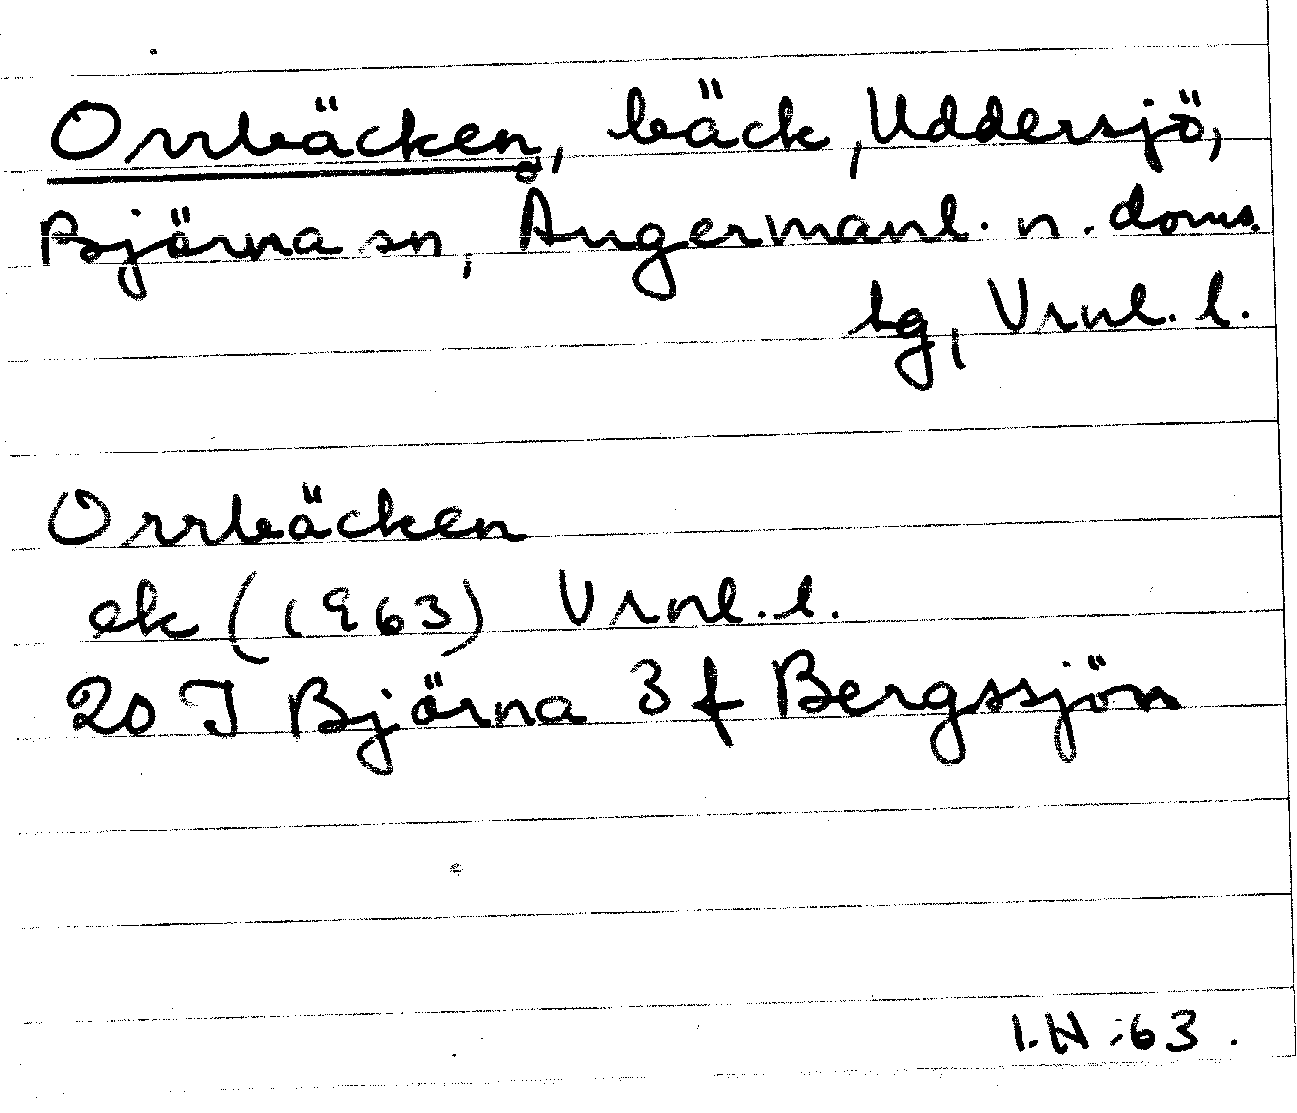 Orrbäcken, bäck, Uddersjö,
Björna sn, Ångermanl. n. doms.
bg, Vrnl. l.
Orrbäcken
ek (1963) Vrnl. l.
20 J Björna 3 f Bergssjön
I.N :63.